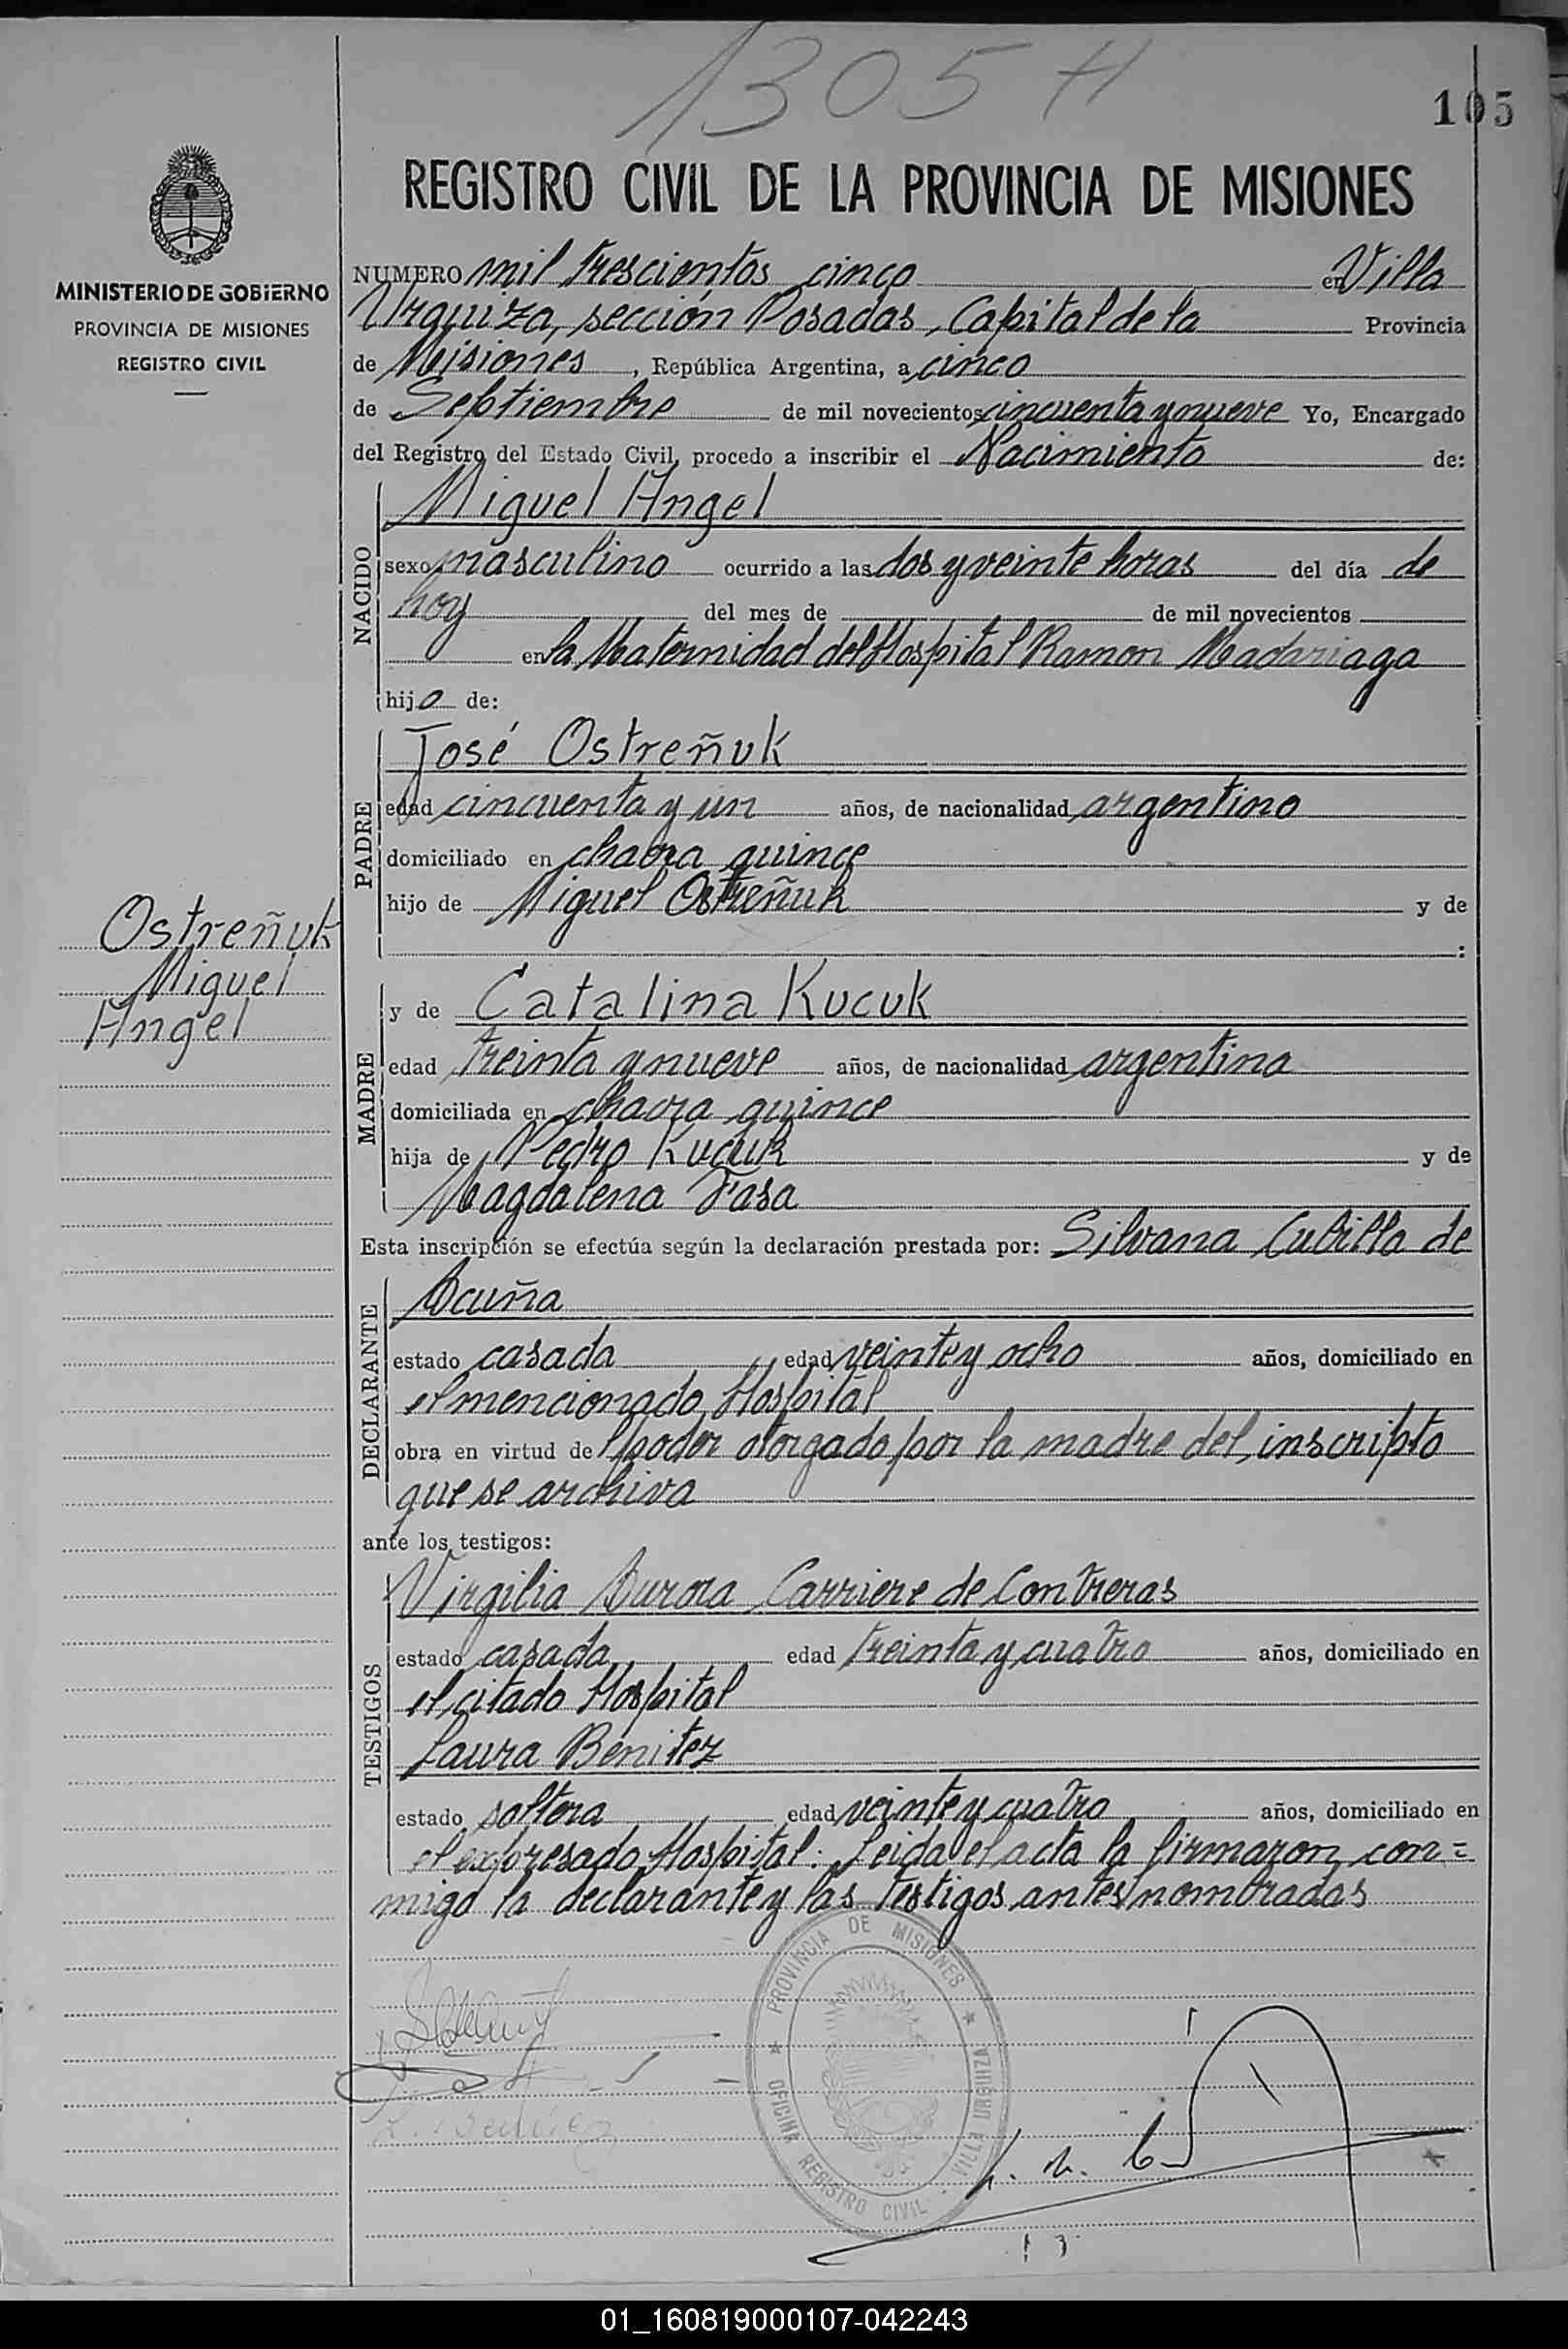 1305 H
105
MINISTERIO DE GOBIERNO
PROVINCIA DE MISIONES
REGISTRO CIVIL
REGISTRO CIVIL DE LA PROVINCIA DE MISIONES
NUMERO mil trescientos cinco en Villa
Urquiza, sección Posadas, Capital de la Provincia
de Misiones, República Argentina, a cinco
de Septiembre de mil novecientos cincuenta y nueve Yo, Encargado
del Registro del Estado Civil, procedo a inscribir el Nacimiento de:
NACIDO
Miguel Angel
sexo masculino ocurrido a las dos y veinte horas del día de
hoy del mes de de mil novecientos
en la Maternidad del Hospital Ramon Madariaga
hijo de:
PADRE
José Ostreñuk
edad cincuenta y un años, de nacionalidad argentino
domiciliado en chacra quince
hijo de Miguel Ostreñuk y de
:
Ostreñuk
Miguel
Angel
MADRE
y de Catalina Kucuk
edad treinta y nueve años, de nacionalidad argentina
domiciliada en chacra quince
hija de Pedro Kucuk y de
Magdalena Fasa
Esta inscripción se efectúa según la declaración prestada por: Silvana Cubilla de
DECLARANTE
Acuña
estado casada edad veinte y ocho años, domiciliado en
el mencionado Hospital
obra en virtud del poder otorgado por la madre del inscripto
que se archiva
ante los testigos:
TESTIGOS
Virgilia Aurora Carriere de Contreras
estado casada edad treinta y cuatro años, domiciliado en
el citado Hospital
Laura Benitez
estado soltera edad veinte y cuatro años, domiciliado en
el expresado Hospital. Leida el acta la firmaron con=
migo la declarante y las testigos antes nombradas
PROVINCIA DE MISIONES
OFICINA REGISTRO CIVIL VILLA URQUIZA
L. Benitez
01_160819000107-042243